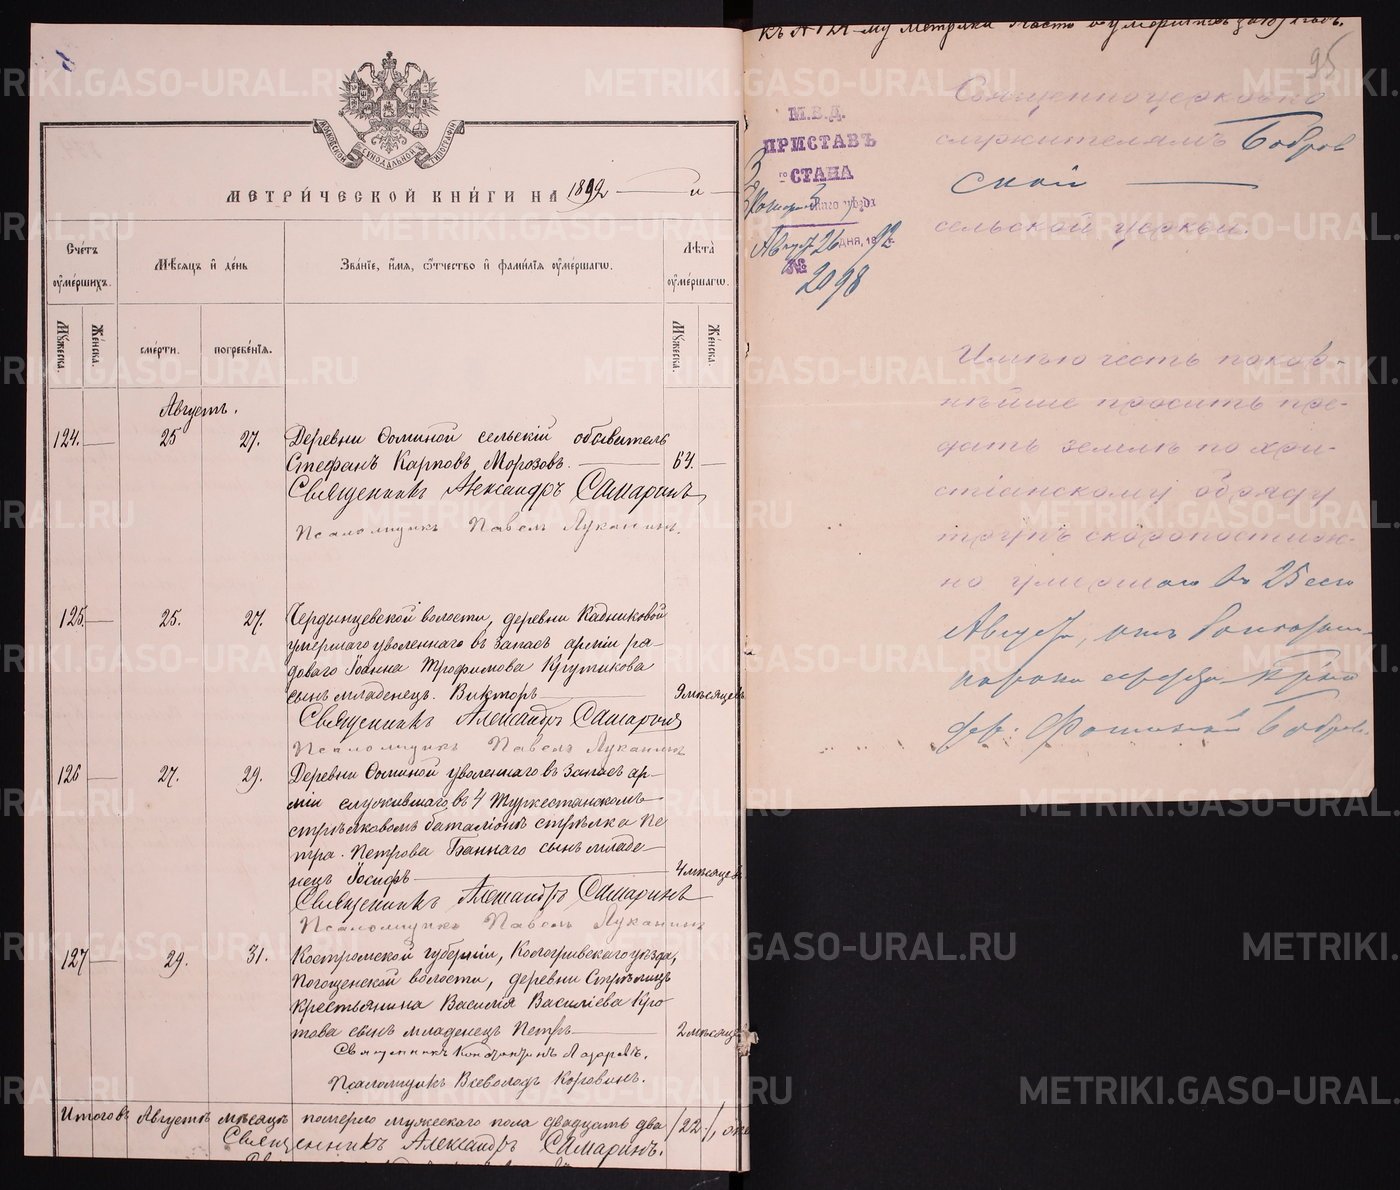 МОСКОВСКОЙ СѴНОДАЛЬНОЙ ТИПОГРАФІИ
МЕТРИЧЕСКОЙ КНИГИ НА 1892
Счетъ умершихъ.
Мѣсяцъ и день
Званіе, имя, отчество и фамилія умершаго.
Лѣта умершаго.
Мужеска.
Женска.
смерти.
погребенія.
Мужеска.
Женска.
Августъ.
124. 25 27. Деревни Ѳоминой сельскій обыватель
Стефанъ Карповъ Морозовъ. 64.
Священникъ Александръ Самаринъ
Псаломщикъ Павелъ Луканинъ.
125. 25. 27. Чердынцевской волости, деревни Кадниковой
умершаго уволеннаго въ запасъ арміи ря-
доваго Іоанна Трофимова Крутикова
сынъ младенецъ Викторъ 9 мѣсяцевъ
Священникъ Александръ Самаринъ
Псаломщикъ Павелъ Луканинъ
126 27. 29. Деревни Ѳоминой уволеннаго въ запасъ ар-
міи служившаго въ 4 Туркестанскомъ
стрѣлковомъ баталіонѣ стрѣлка Пе
тра Петрова Баннаго сынъ младе-
нецъ Іосифъ 4 мѣсяцевъ
Священникъ Александръ Самаринъ
Псаломщикъ Павелъ Луканинъ
127 29. 31. Костромской губерніи, Кологривскаго уѣзда,
волости, деревни
крестьянина Василія Василіева Кро
това сынъ младенецъ Петръ 2 мѣсяцевъ
Священникъ Константинъ
Псаломщикъ Всеволодъ Коровинъ.
Итого въ Августѣ мѣсяцѣ померло мужескаго пола двадцать два /22/,
Священникъ Александръ Самаринъ.
къ № 124-му метрики части о умершихъ за 1892 годъ.
95
М.В.Д.
ПРИСТАВЪ
3 го СТАНА
скаго уѣзда
Август 26 дня, 1892
№ 2098
Священноцерковно
служителямъ Бобров
ской
сельской церкви.
Имѣю честь покор-
нѣйше просить пре-
дать землѣ по хри-
стіанскому обряду
трупъ скоропостиж-
но умершаго въ 25 сего
Августа, отъ
сердца кр
дер. Фоминой Бобров.
METRIKI.GASO-URAL.RU